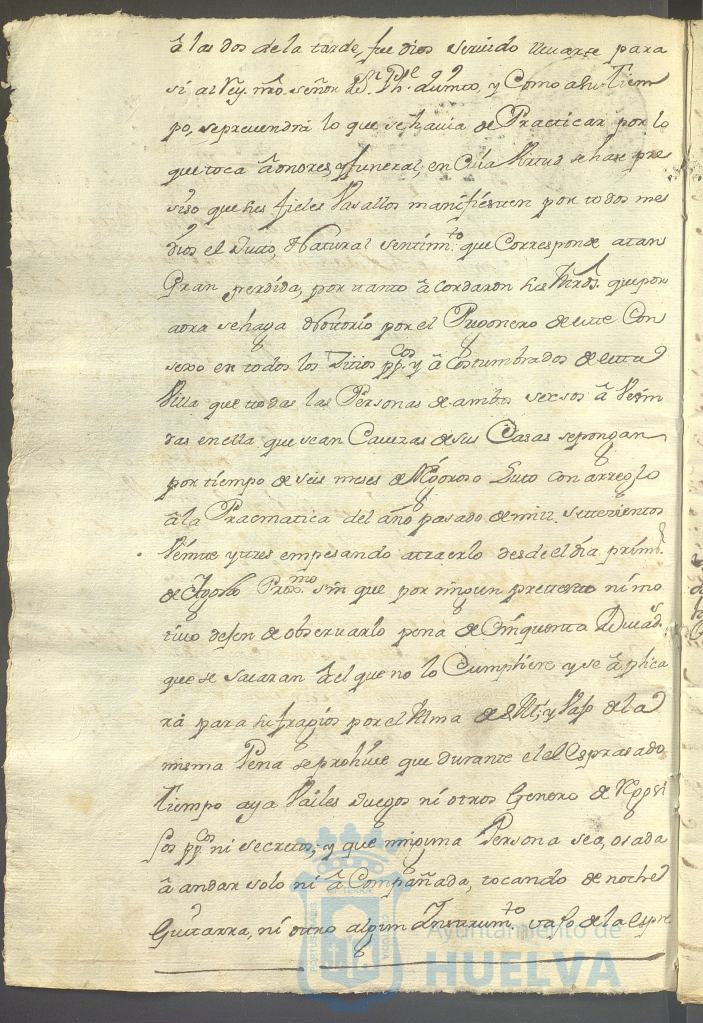 â las dos dela tarde, fue dios servido llevarse para
sí al Rey nrô. señor Dn. Phe. quinto, y Como a su tiem
po, se prevendrá lo que se havia de Practicar por lo
que toca â onores, y funeral, en Cuia Virtud se hase pre
siso que sus fieles Vasallos manifiesten por todos me
dios el Justo, Natural sentimto. que Corresponde a tan
Gran perdida, por tanto â cordaron sus Mrds. que por
aora se haga Notorio por el Pregonero de este Con
sexo en todos los Sitios ppcos. y â Costumbrados de esta
Villa que todas las Personas de ambos sexsos â Vesin
das en ella que sean Cavezas de sus Casas se pongan
por tiempo de seis meses de Rigoroso Luto con arreglo
âla Pracmatica del año pasado de mill settesientos
Veinte y tres empesando atraerlo desde el día primo.
de Agosto Proxmo. sin que por ningun pretexto ni mo
tivo dejen de observarlo pena de Cinquenta Ducads.
que se sacaran âel que no lo Cumpliere y se âplica
rá para sufragios por el Alma de S. M.; y Vajo de la
misma Pena se prohive que durante el el Espresado
Tiempo aya Vailes Juegos ni otros Genero de Regosi
sos ppcos. ni secretos; y que ninguna Persona sea, osada
â andar solo ni â Compañada, tocando de noche
Guitarra, ni otro algun Instrumto. vajo de la Espre
Ayuntamiento de
HUELVA